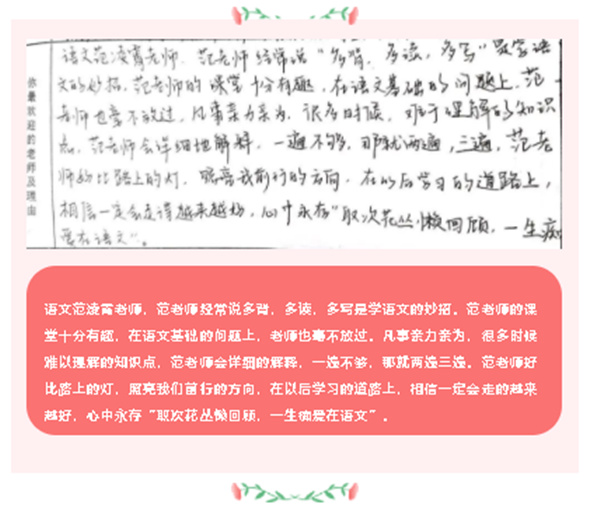 你最欢迎的老师及理由
语文范凌霄老师，范老师经常说"多背，多读，多写"是学语
文的妙招。范老师的课堂十分有趣，在语文基础的问题上，范
老师也毫不放过，凡事亲力亲为，很多时候，难于理解的知识
点，范老师会详细地解释，一遍不够，那就两遍，三遍，范老
师好比路上的灯，照亮我前行的方向，在以后学习的道路上，
相信一定会走得越来越好，心中永存"取次花丛懒回顾，一生痴
爱在语文"。
语文范凌霄老师，范老师经常说多背，多读，多写是学语文的妙招。范老师的课
堂十分有趣，在语文基础的问题上，老师也毫不放过。凡事亲力亲为，很多时候
难以理解的知识点，范老师会详细的解释，一遍不够，那就两遍三遍。范老师好
比路上的灯，照亮我们前行的方向，在以后学习的道路上，相信一定会走的越来
越好，心中永存"取次花丛懒回顾，一生痴爱在语文"。